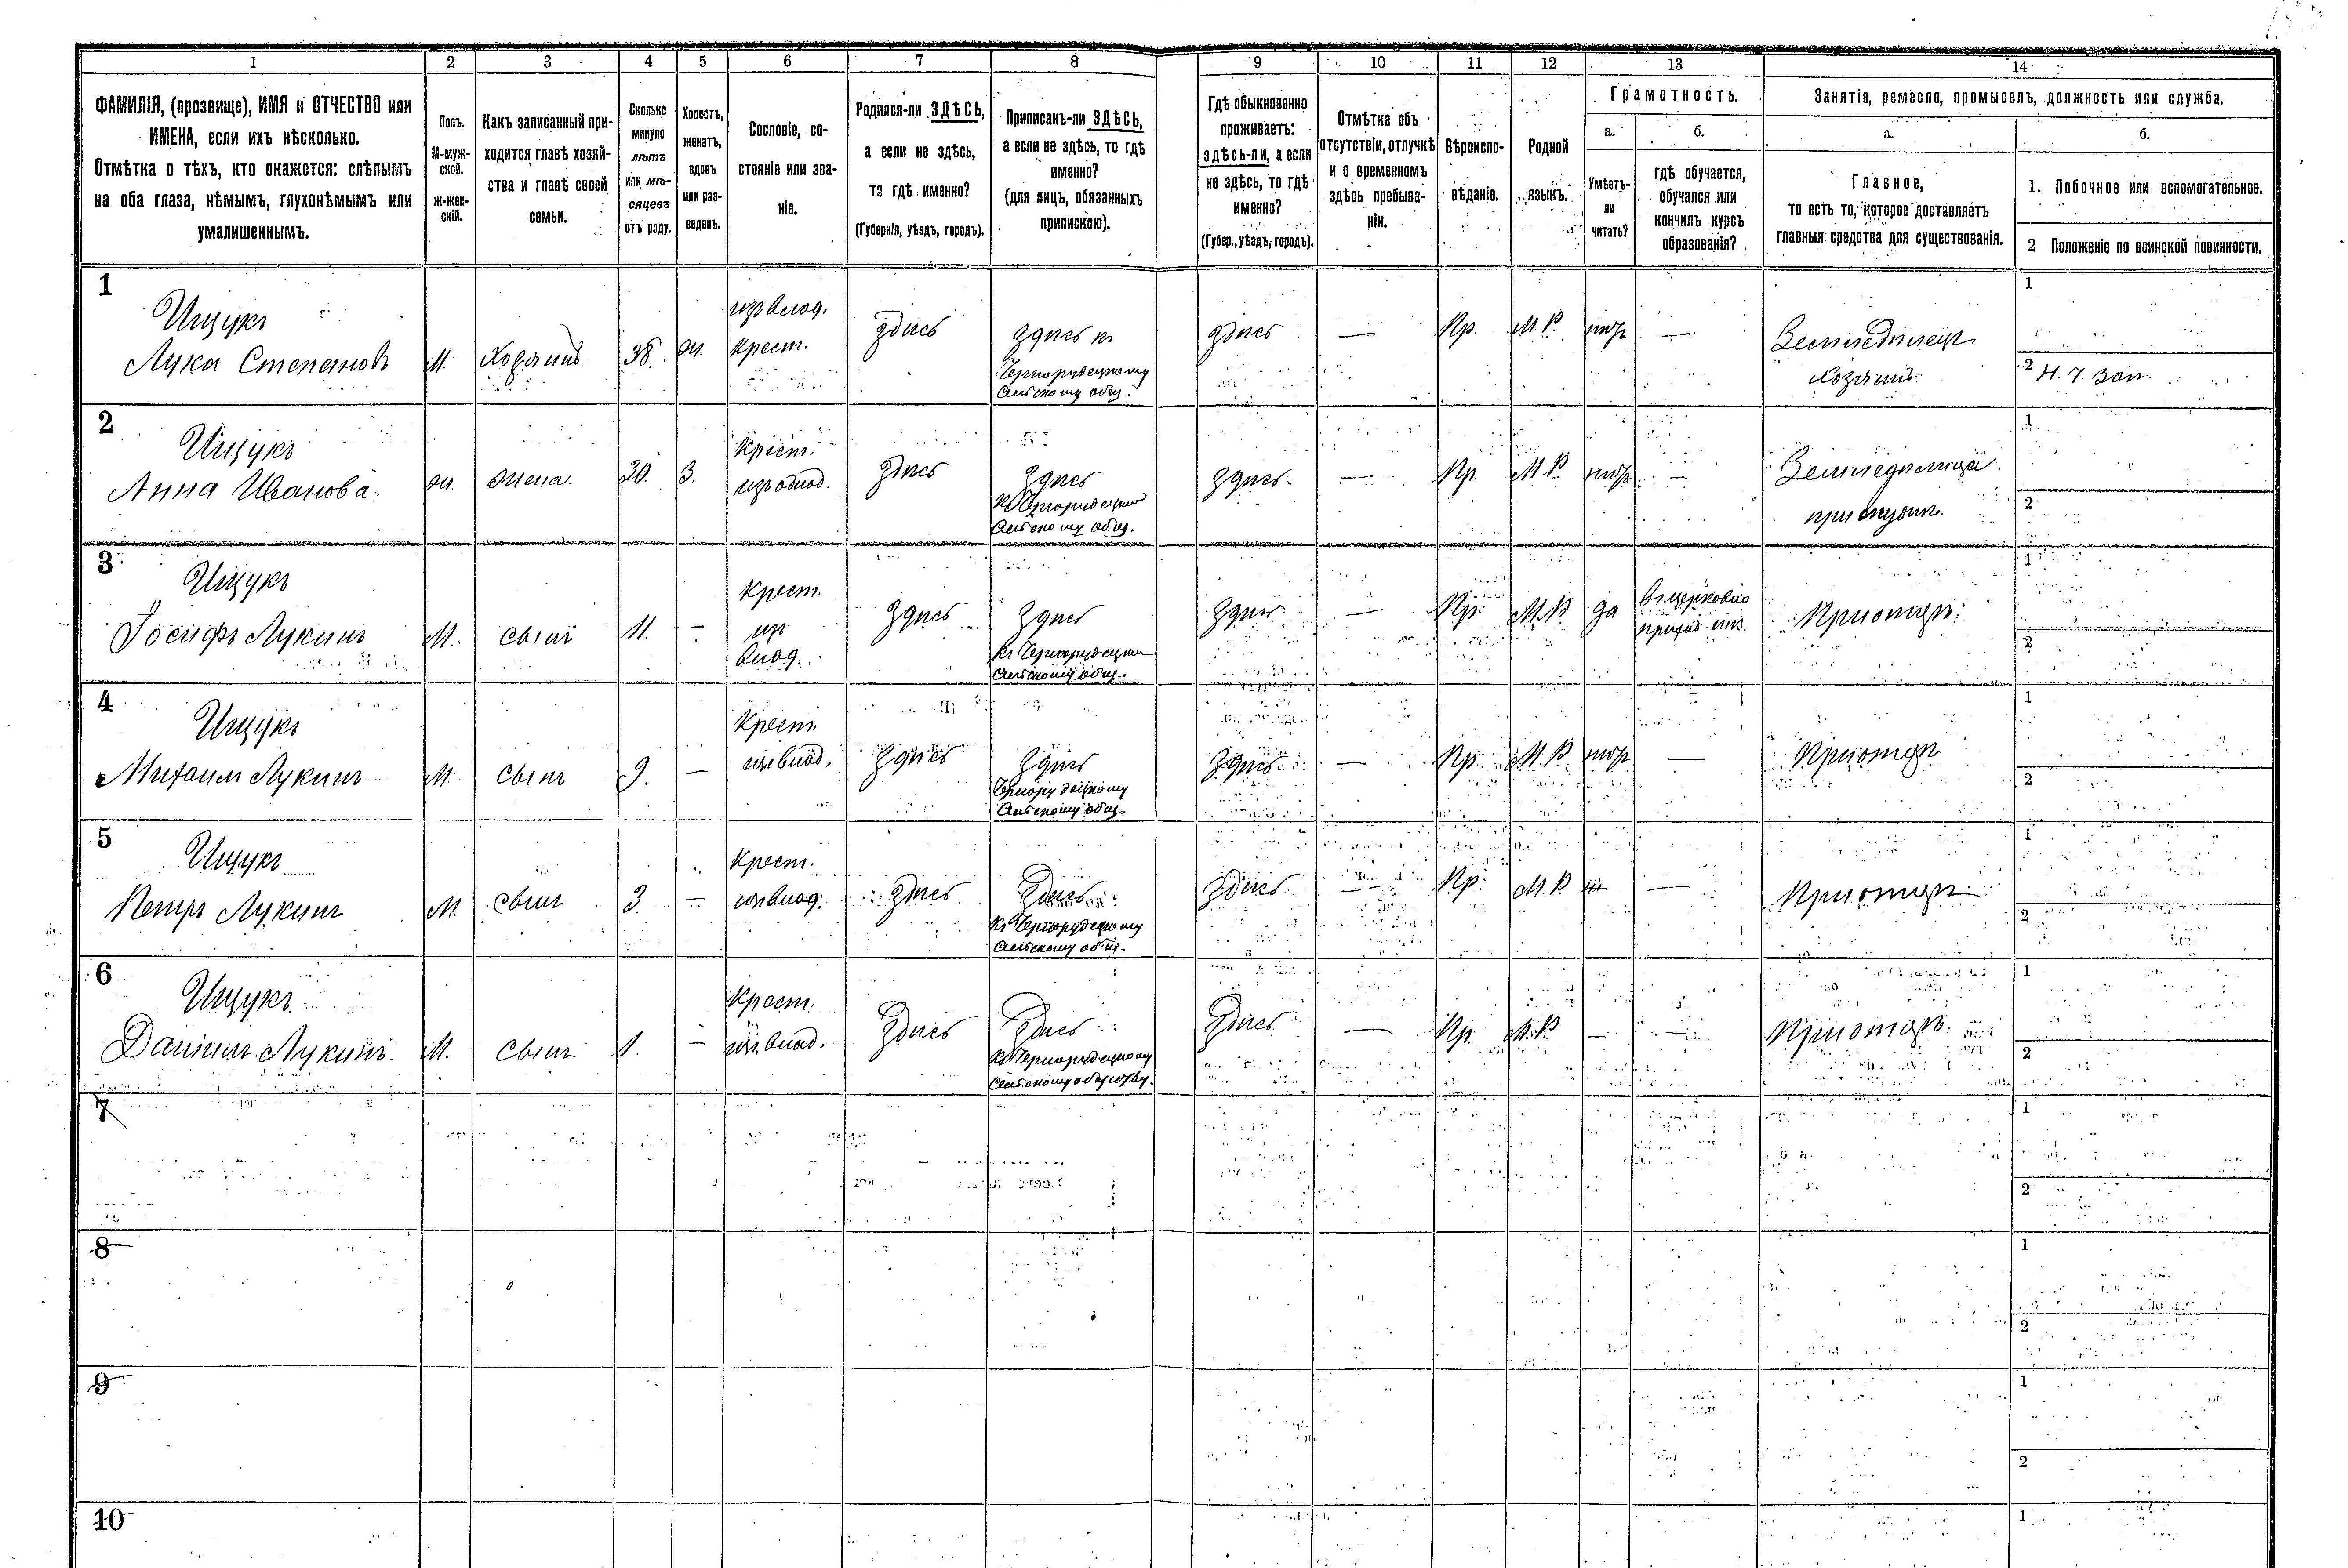 1 2 3 4 5 6 7 8 9 10 11 12 13 14
ФАМИЛІЯ, (прозвище), ИМЯ и ОТЧЕСТВО или
ИМЕНА, если ихъ нѣсколько.
Отмѣтка о тѣхъ, кто окажется: слѣпымъ
на оба глаза, нѣмымъ, глухонѣмымъ или
умалишеннымъ.
Полъ.
М-муж-
ской.
ж-жен-
скій.
Какъ записанный при-
ходится главѣ хозяй-
ства и главѣ своей
семьи.
Сколько
минуло
лѣтъ
или мѣ-
сяцевъ
отъ роду.
Холостъ,
женатъ,
вдовъ
или раз-
веденъ.
Сословіе, со-
стояніе или зва-
ніе.
Родился-ли ЗДѢСЬ,
а если не здѣсь,
то гдѣ именно?
(Губернія, уѣздъ, городъ).
Приписанъ-ли ЗДѢСЬ,
а если не здѣсь, то гдѣ
именно?
(для лицъ, обязанныхъ
припискою).
Гдѣ обыкновенно
проживаетъ:
здѣсь-ли, а если
не здѣсь, то гдѣ
именно?
(Губер., уѣздъ, городъ).
Отмѣтка объ
отсутствіи, отлучкѣ
и о временномъ
здѣсь пребыва-
ніи.
Вѣроиспо-
вѣданіе.
Родной
языкъ.
Грамотность.
а.
Умѣетъ-
ли
читать?
б.
гдѣ обучается,
обучался или
кончилъ курсъ
образованія?
Занятіе, ремесло, промыселъ, должность или служба.
а.
Главное,
то есть то, которое доставляетъ
главныя средства для существованія.
б.
1. Побочное или вспомогательное.
2 Положеніе по воинской повинности.
1
Ищукъ
Лука Степановъ
М.
Хозяинъ
38.
ж.
изъ влад.
крест.
здѣсь
здѣсь къ
Чернорудецкому
сельскому общ.
здѣсь
—
Пр.
М. Р.
нѣтъ
—
Земледѣлецъ
хозяинъ
1
2 Н. Ч. Зап.
2
Ищукъ
Анна Иванова.
ж.
жена.
30.
З.
крест.
здѣсь
здѣсь
къ
сельскому общ.
здѣсь
—
Пр.
М. Р
нѣтъ
—
1
2
3
Ищукъ
Іосифъ Лукинъ
М.
сынъ
11.
—
крест.
изъ
влад.
здѣсь
здѣсь
къ
сельскому общ.
здѣсь
—
Пр.
М. Р
да
въ церковно
приход. шк.
При отцѣ
1
2
4
Ищукъ
Михаилъ Лукинъ
М.
сынъ
9.
—
крест.
изъ влад.
здѣсь
здѣсь
Чернорудецкому
сельскому общ.
здѣсь
—
Пр.
М. Р
нѣтъ
—
При отцѣ
1
2
5
Ищукъ
Петръ Лукинъ
М.
сынъ
3
—
крест.
изъ влад.
здѣсь
здѣсь
къ Чернорудецкому
сельскому общ.
здѣсь
—
Пр.
М. Р
—
При отцѣ
1
2
6
Ищукъ
Даніилъ Лукинъ.
М.
сынъ
1.
—
крест.
изъ влад.
здѣсь
здѣсь
къ Чернорудецкому
сельскому
здѣсь
—
Пр.
М. Р
—
—
При отцѣ
1
2
7
1
2
8
1
2
9
1
2
10
1